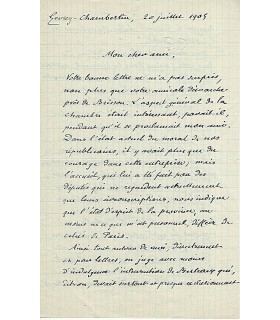 Gevrey-Chambertin, 20 juillet 1905
Mon cher ami,
Votre bonne lettre ne m'a pas surpris,
non plus que votre amicale démarche
près de Brisson. L'aspect général de la
chambre était intéressant, paraît-il,
pendant qu'il se proclamait mon ami.
Dans l'état actuel du moral de nos
républicains, il y avait plus que du
courage dans cette entreprise; mais
l'accueil, qui lui a été fait par des
députés qui ne regardent strictement
que leurs circonscriptions, nous indique
que l'état d'esprit de la province, au
moins n'a pas différer de
celui de Paris.
Ainsi tout autour de moi, directement
ou par lettres, on juge avec moins
d'indulgence l'intervention de Berteaux qui,
dit-on, devait surtout et presque exclusivement